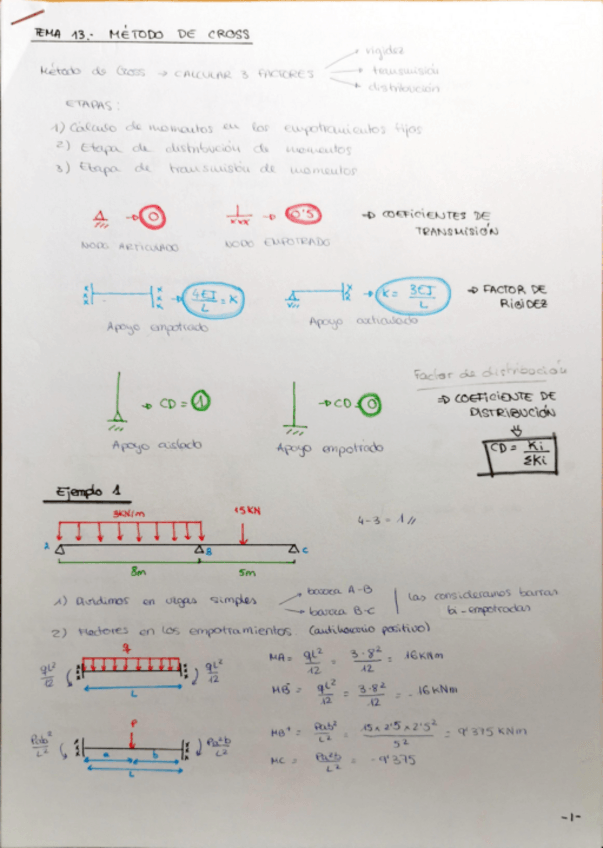 TEMA 13.- MÉTODO DE CROSS
Método de Cross → CALCULAR 3 FACTORES → rigidez
→ transmisión
→ distribución
ETAPAS:
1) Cálculo de momentos en los empotramientos fijos
2) Etapa de distribución de momentos
3) Etapa de transmisión de momentos
→ 0 → 0'5 → COEFICIENTES DE TRANSMISIÓN
NODO ARTICULADO NODO EMPOTRADO
→ 4EI/L = K → K = 3EI/L → FACTOR DE RIGIDEZ
Apoyo empotrado Apoyo articulado
Factor de distribución
→ CD = 1 → CD = 0 ⇒ COEFICIENTE DE DISTRIBUCIÓN
Apoyo aislado Apoyo empotrado
CD = Ki/ΣKi
Ejemplo 1
3KN/m 15KN
4-3 = 1 //
A B C
8m 5m
1) Dividimos en vigas simples → barra A-B
→ barra B-C
las consideramos barras bi-empotradas
2) Mectores en los empotramientos (antihorario positivo)
q
qL²/12 qL²/12
L
MA = qL²/12 = 3·8²/12 = 16KNm
MB⁻ = qL²/12 = 3·8²/12 = -16KNm
P
Pab²/L² Pa²b/L²
a b
L
MB⁺ = Pab²/L² = 15x2'5x2'5²/5² = 9'375 KNm
MC = Pa²b/L² = -9'375
-1-